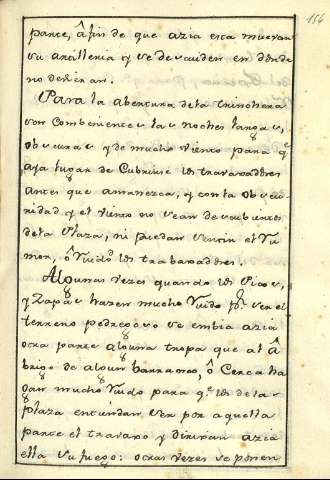 156
parte, â fin de que azia esta muevan
su artilleria y se descuiden en donde
no devieran.
Para la abertura de la trinchera
son combenientes las noches largas,
obscuras y de mucho viento para q.e
aya lugar de Cubrirse los travaxadores
antes que amanezca, y con la obscu
ridad y el viento no sean descubiertos
de la Plaza, ni puedan sentir el Ru
mor, ô Ruido de los trabaxadores.
Algunas vezes quando los Picos,
y Zapas hazen mucho Ruido p.r ser el
terreno pedregoso se embia azia
otra parte alguna tropa que al â
brigo de algun barranco, ô Cerca ha
gan mucho Ruido para q.e los de la
plaza entiendan ser por aquella
parte el travaxo y dirixan azia
ella su fuego: otras vezes se ponen